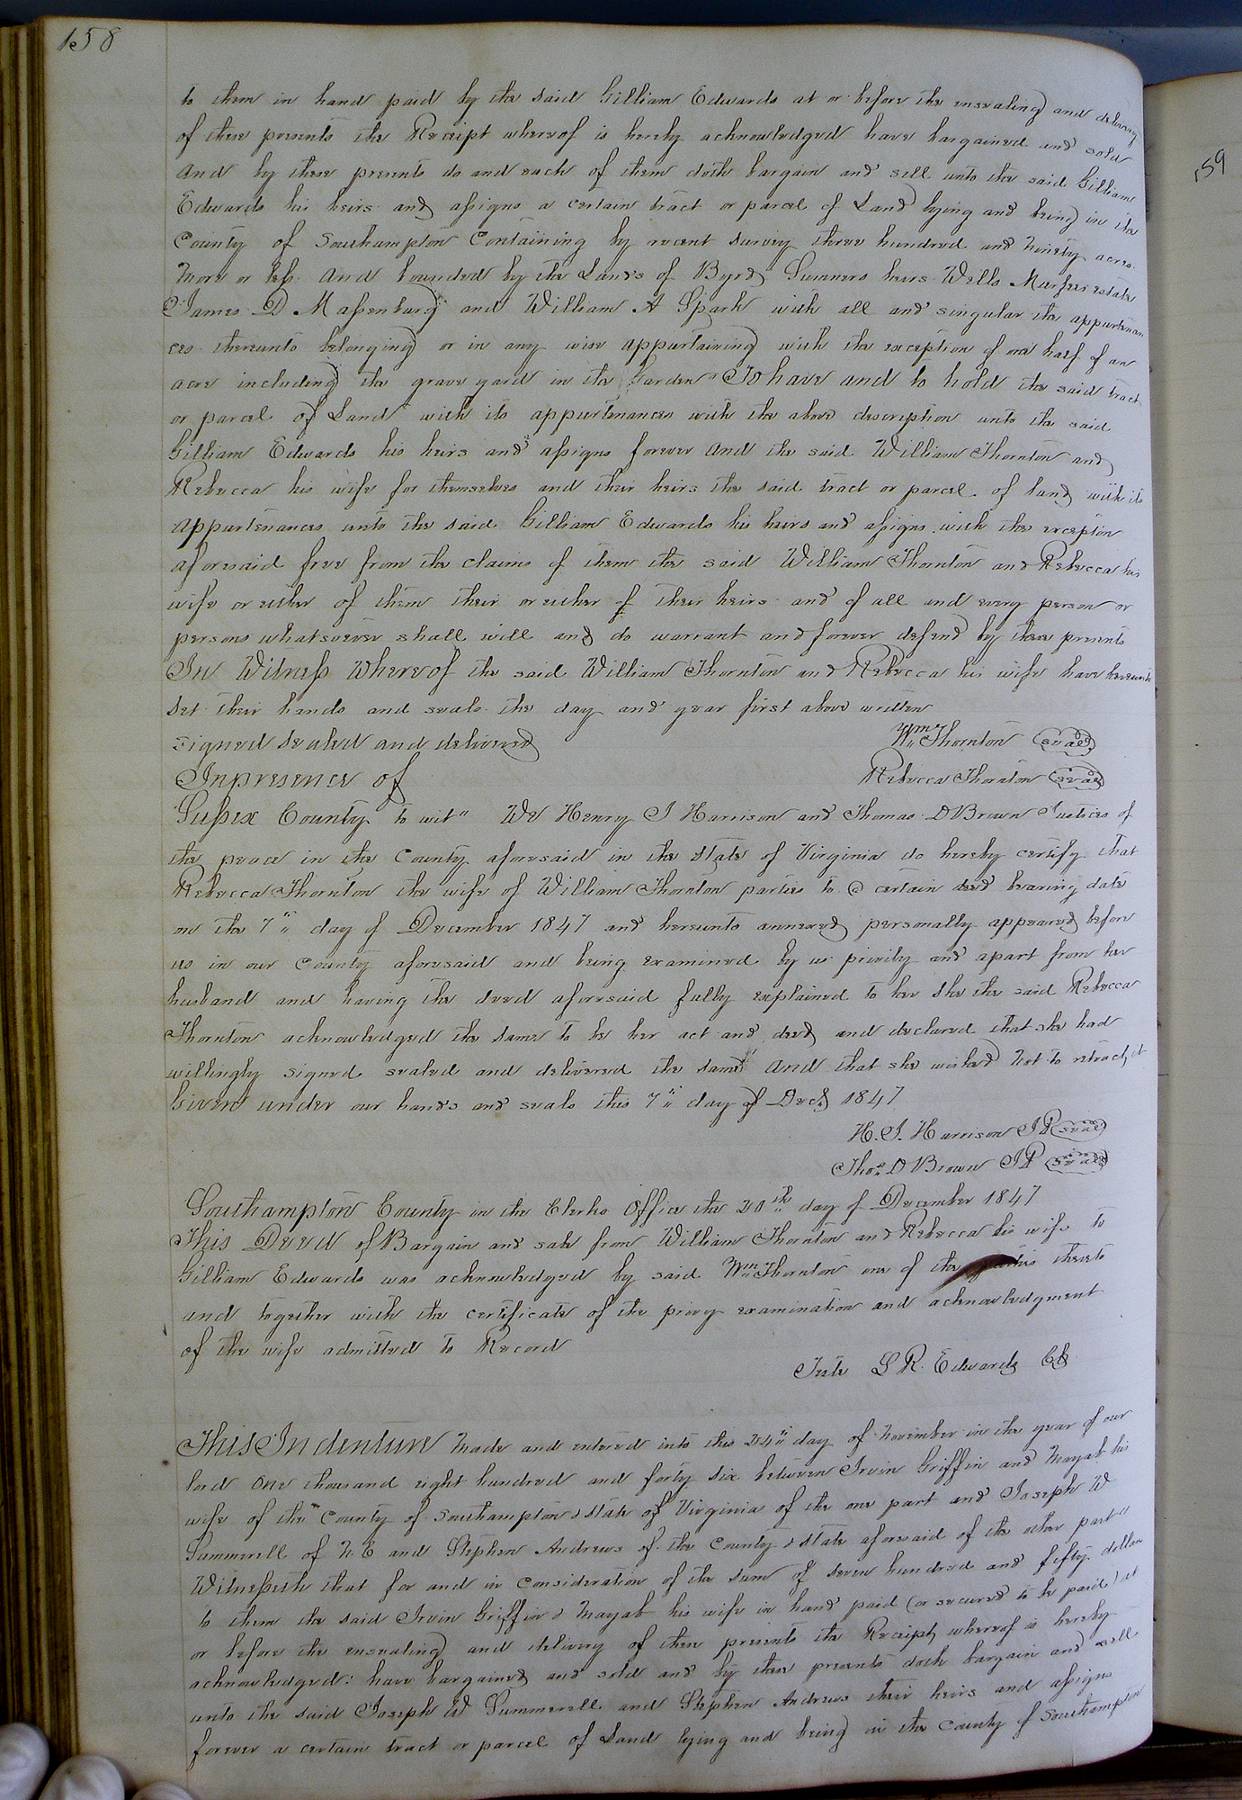 158
to them in hand paid by the said Gilliam Edwards at or before the ensealing and delivery
of these presents the Receipt whereof is hereby acknowledged have bargained and sold
and by these presents do and each of them doth bargain and sell unto the said Gilliam
Edwards his heirs and assigns a certain tract or parcel of Land lying and being in the
County of Southampton Containing by recent survey three hundred and ninety acres
more or less and bounded by the Lands of Byrd Summers heirs Wells estate
James D Massenburg and William A Spark with all and singular the appurtenan
ces thereunto belonging or in any wise appurtaining with the exception of one half of an
acre including the grave yard in the Garden To have and to hold the said tract
or parcel of Land with its appurtenances with the above description unto the said
Gilliam Edwards his heirs and assigns forever And the said William Thornton and
Rebecca his wife for themselves and their heirs the said tract or parcel of land with its
appurtenances unto the said Gilliam Edwards his heirs and assigns with the exception
aforesaid free from the claims of them the said William Thornton and Rebecca his
wife or either of them their or either of their heirs and of all and every person or
persons whatsoever shall will and do warrant and forever defend by these presents
In Witness Whereof the said William Thornton and Rebecca his wife have hereunto
set their hands and seals the day and year first above written
signed sealed and delivered Wm Thornton (seal)
In presence of Rebecca Thornton (seal)
Sussex County to wit" We Henry J Harrison and Thomas D Brown Justices of
the peace in the County aforesaid in the State of Virginia do hereby certify that
Rebecca Thornton the wife of William Thornton parties to a certain deed bearing date
on the 7" day of December 1847 and hereunto annexed personally appeared before
us in our County aforesaid and being examined by us privily and apart from her
husband and having the deed aforesaid fully explained to her she the said Rebecca
Thornton acknowledged the same to be her act and deed and declared that she had
willingly signed sealed and delivered the same and that she wished not to retract it
Given under our hands and seals this 7" day of Decr 1847
H. J. Harrison JP (seal)
Thos D Brown JP (seal)
Southampton County in the Clerks Office the 20th day of December 1847
This Deed of Bargain and sale from William Thornton and Rebecca his wife to
Gilliam Edwards was acknowledged by said Wm Thornton one of the parties thereto
and together with the certificate of the privy examination and acknowledgment
of the wife admitted to Record
Teste L R. Edwards Clk
This Indenture made and entered into this 24" day of November in the year of our
lord One thousand eight hundred and forty six between Irvin Griffin and Mayab his
wife of the County of Southampton & State of Virginia of the one part and Joseph W
Summerell of N. C and Stephen Andrews of the County & State aforesaid of the other part
Witnesseth that for and in consideration of the sum of seven hundred and fifty dollars
to them the said Irvin Griffin & Mayab his wife in hand paid (or secured to be paid) at
or before the ensealing and delivery of these presents the Receipt whereof is hereby
acknowledged: have bargained and sold and by these presents doth bargain and sell
unto the said Joseph W Summerell and Stephen Andrews their heirs and assigns
forever a certain tract or parcel of Land lying and being in the County of Southampton
159